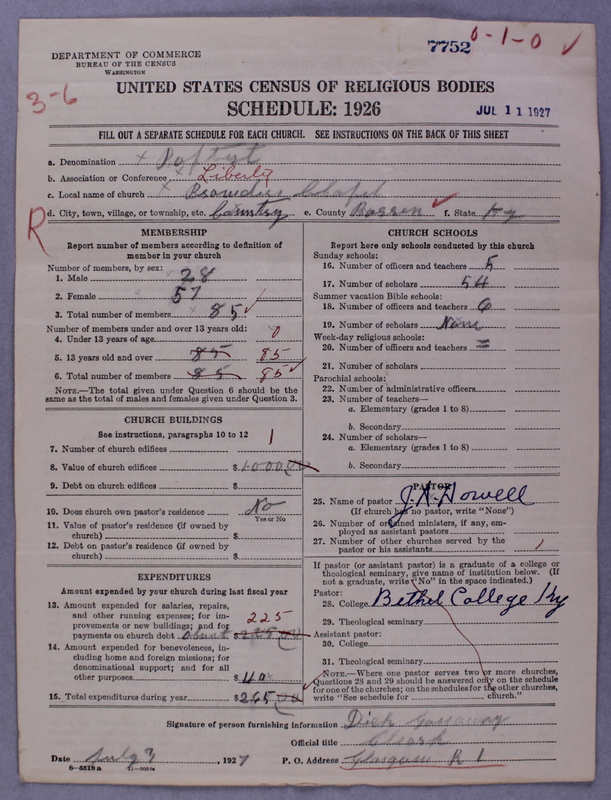 7752
0-1-0 ✓
DEPARTMENT OF COMMERCE
BUREAU OF THE CENSUS
WASHINGTON
3-6
UNITED STATES CENSUS OF RELIGIOUS BODIES
SCHEDULE: 1926
JUL 11 1927
FILL OUT A SEPARATE SCHEDULE FOR EACH CHURCH. SEE INSTRUCTIONS ON THE BACK OF THIS SHEET
a. Denomination
b. Association or Conference Liberty
c. Local name of church Chapel
R
d. City, town, village, or township, etc. Country e. County Barren f. State Ky
MEMBERSHIP
Report number of members according to definition of
member in your church
Number of members, by sex:
1. Male 28
2. Female 57
3. Total number of members 85 ✓
Number of members under and over 13 years old:
4. Under 13 years of age 0
5. 13 years old and over 85 85
6. Total number of members 85 85 ✓
NOTE.—The total given under Question 6 should be the
same as the total of males and females given under Question 3.
CHURCH BUILDINGS
See instructions, paragraphs 10 to 12
7. Number of church edifices 1
8. Value of church edifices $
9. Debt on church edifices $
10. Does church own pastor's residence No
Yes or No
11. Value of pastor's residence (if owned by
church) $
12. Debt on pastor's residence (if owned by
church) $
EXPENDITURES
Amount expended by your church during last fiscal year
13. Amount expended for salaries, repairs,
and other running expenses; for im-
provements or new buildings; and for
payments on church debt about $ 225
14. Amount expended for benevolences, in-
cluding home and foreign missions; for
denominational support; and for all
other purposes $ 40
15. Total expenditures during year $ 265.00
CHURCH SCHOOLS
Report here only schools conducted by this church
Sunday schools:
16. Number of officers and teachers 5
17. Number of scholars 54
Summer vacation Bible schools:
18. Number of officers and teachers
19. Number of scholars None
Week-day religious schools:
20. Number of officers and teachers =
21. Number of scholars
Parochial schools:
22. Number of administrative officers
23. Number of teachers—
a. Elementary (grades 1 to 8)
b. Secondary
24. Number of scholars—
a. Elementary (grades 1 to 8)
b. Secondary
PASTOR
25. Name of pastor Howell
(If church has no pastor, write "None")
26. Number of ordained ministers, if any, em-
ployed as assistant pastors
27. Number of other churches served by the
pastor or his assistants 1
If pastor (or assistant pastor) is a graduate of a college or
theological seminary, give name of institution below. (If
not a graduate, write "No" in the space indicated.)
Pastor:
28. College Bethel College Ky
29. Theological seminary
Assistant pastor:
30. College
31. Theological seminary
NOTE.—Where one pastor serves two or more churches,
Questions 28 and 29 should be answered only on the schedule
for one of the churches; on the schedules for the other churches,
write "See schedule for church."
Signature of person furnishing information Dick
Official title Clerk
Date July 3, 1927 P. O. Address Glasgow R 1
8-5518a